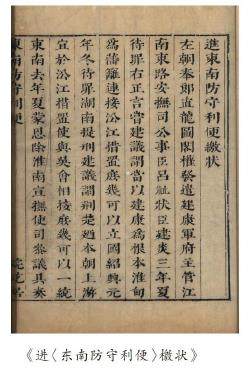 進東南防守利便繳狀
左朝奉郎直龍圖閣權發遣建康軍府主管江
南東路安撫司公事臣呂祉狀臣建炎三年夏
待罪右正言嘗建議謂當以建康爲根本淮甸
爲藩籬連接㳂江措置庶幾可以立國紹興元
年冬待罪湖南提刑建議謂荆楚迺本朝上游
宜於㳂江措置使與吳會相接庶幾可以一統
東南去年夏蒙恩除淮南宣撫使司參議具奏
東南防守利便
《进〈东南防守利便〉缴状》